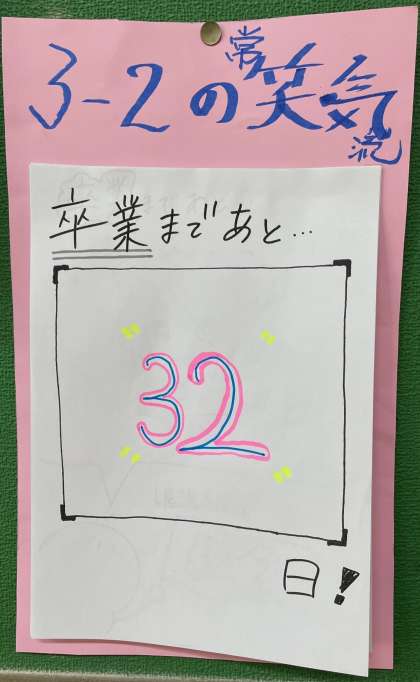 3-2の常笑気流
卒業まであと…
32
日!